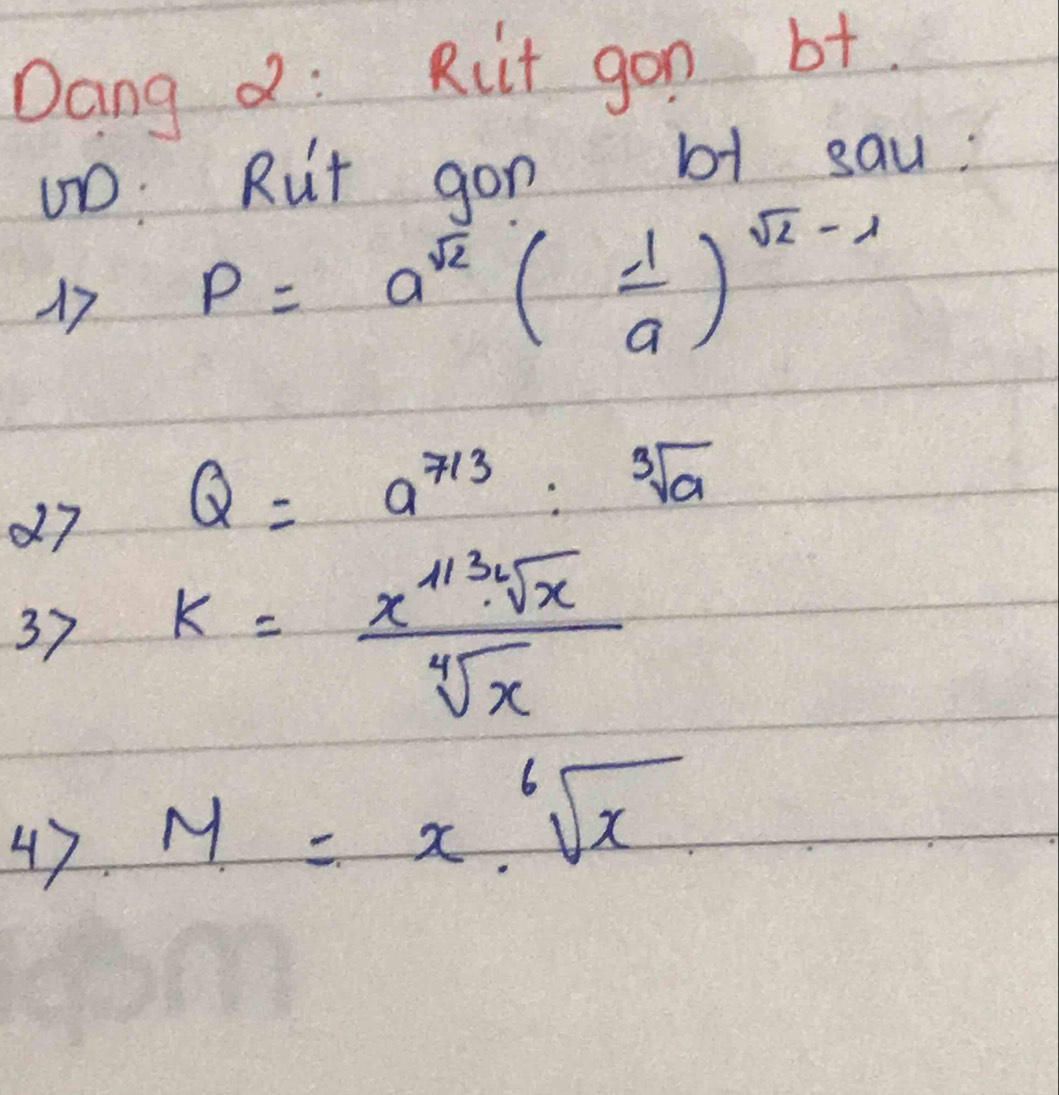 Dạng 2: Rút gọn bt.
VD: Rút gọn bt sau:
1> P = a^{√2} (1/a)^{√2 - 1}
2> Q = a^{7/3} : ∛a
3> K = (x^{1/3} . ⁶√x) / ⁴√x
4> M = x . ⁶√x